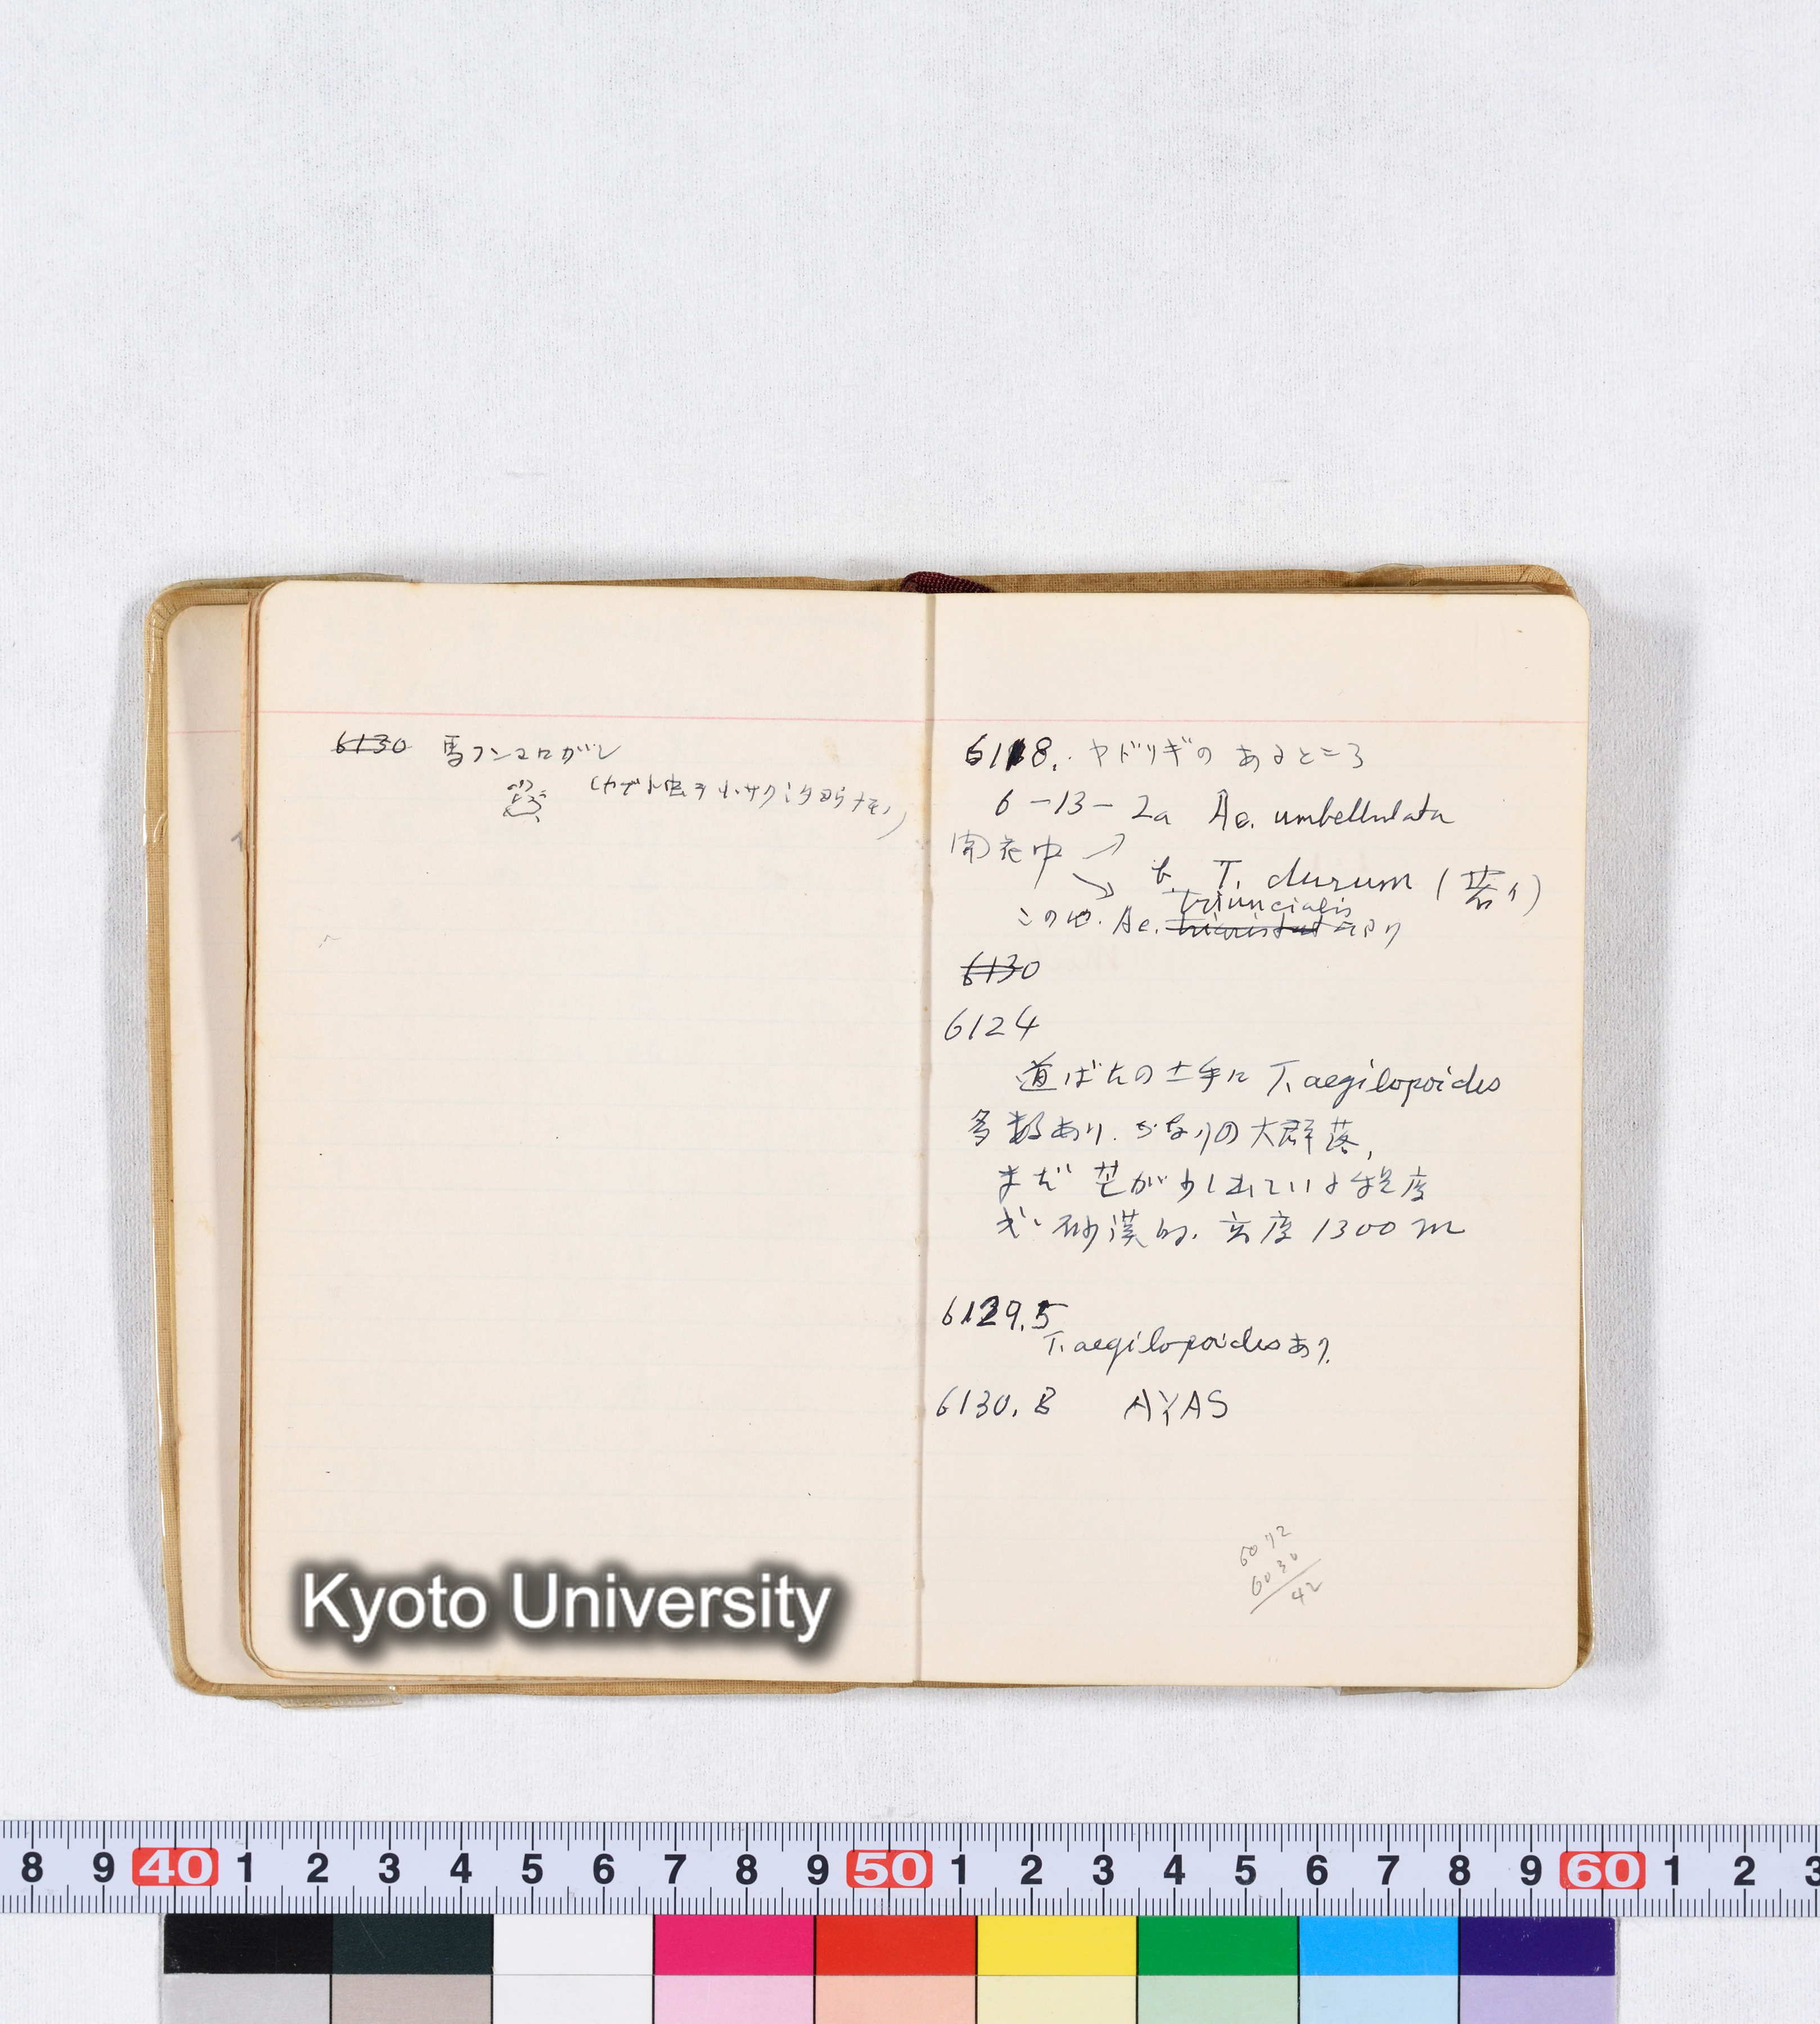 6130 馬フンコロガシ
(カブト虫ヲ小サクシタ如ラナモノ)
6118. ヤドリギの あるところ
6-13-2a Ae. umbellulata
開花中
b. T. durum (若イ)
triuncialis
この他. Ae. tricristat あり
6130
6124
道ばたの土手に T. aegilopoides
多数あり. かなりの大群落,
まだ 芒が少し出ている程度
砂漠的. 高度 1300 m
6129.5
T. aegilopoides あり.
6130.8 AYAS
6072
6030
42
Kyoto University
8 9 40 1 2 3 4 5 6 7 8 9 50 1 2 3 4 5 6 7 8 9 60 1 2 3